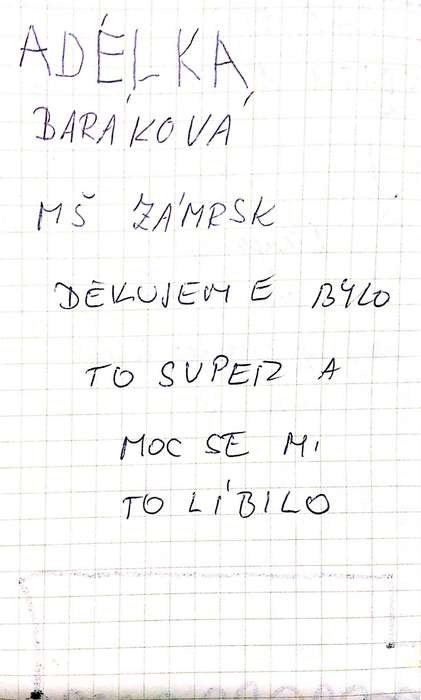 ADÉLKA
BARÁKOVÁ
MŠ ZÁMRSK
DĚKUJEME BYLO
TO SUPER A
MOC SE MI
TO LÍBILO